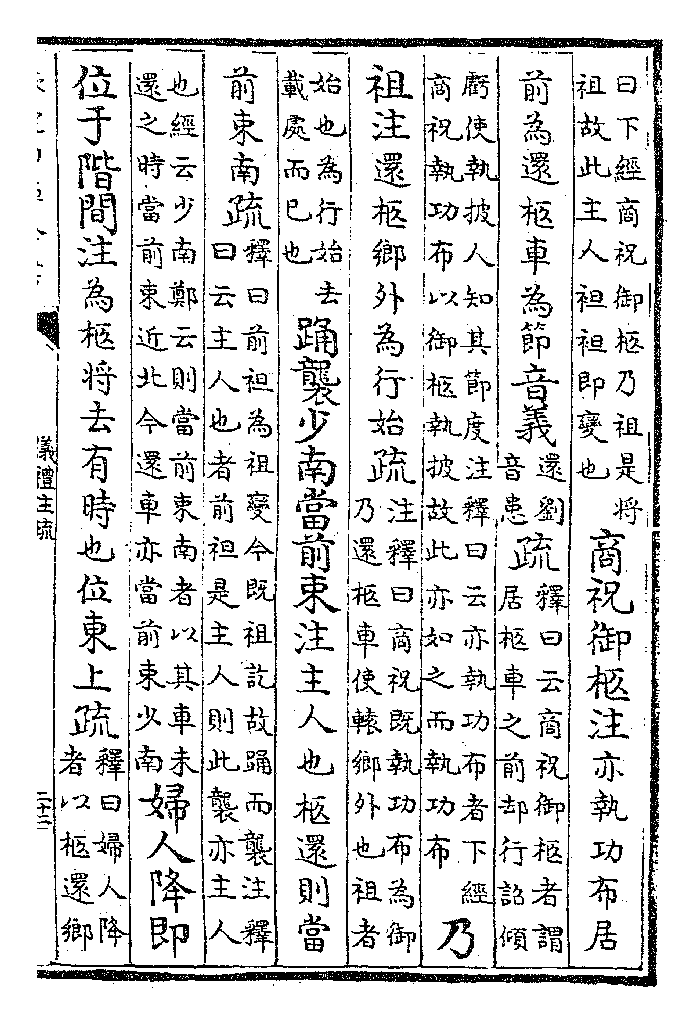 曰下經商祝御柩乃祖是将祖故此主人袒袒即變也商祝御柩注亦執功布居
前為還柩車為節音義還劉音患疏釋曰云商祝御柩者謂居柩車之前却行詔傾
虧使執披人知其節度注釋曰云亦執功布者下經商祝執功布以御柩執披故此亦如之而執功布乃
祖注還柩鄉外為行始疏注釋曰商祝既執功布為御乃還柩車使轅鄉外也祖者
始也為行始去載處而已也踊襲少南當前束注主人也柩還則當
前束南疏釋曰前袒為祖變今既祖訖故踊而襲注釋曰云主人也者前袒是主人則此襲亦主人
也經云少南鄭云則當前束南者以其車未還之時當前束近北今還車亦當前束少南婦人降即
位于階間注為柩将去有時也位東上疏釋曰婦人降者以柩還鄉
儀禮注疏